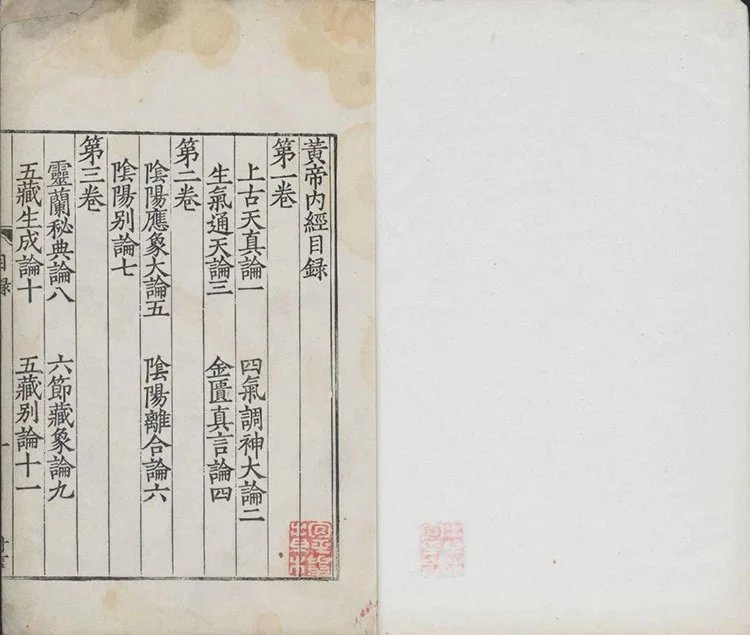 黃帝内經目録
第一卷
上古天真論一 四氣調神大論二
生氣通天論三 金匱真言論四
第二卷
陰陽應象大論五 陰陽離合論六
陰陽别論七
第三卷
靈蘭秘典論八 六節藏象論九
五藏生成論十 五藏别論十一
目録 一